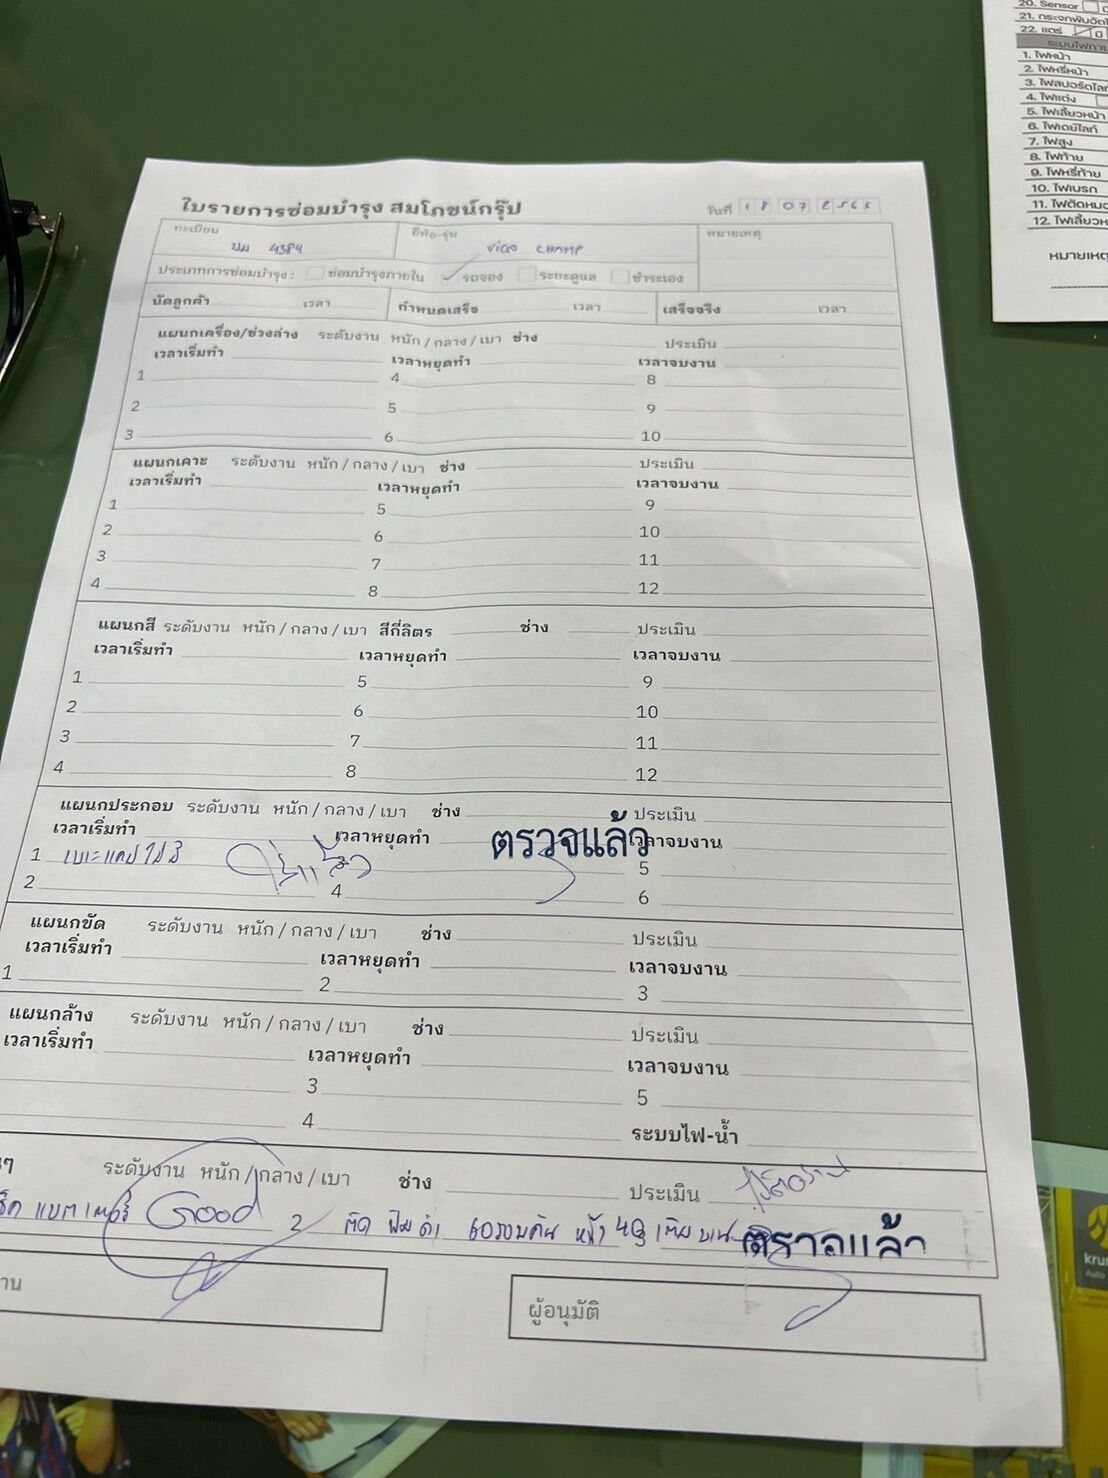 ใบรายการซ่อมบำรุง สมโภชน์กรุ๊ป
วันที่ 18 07 2565
ทะเบียน ยี่ห้อ-รุ่น หมายเหตุ
4384 VIGO CHAMP
ประเภทการซ่อมบำรุง : ซ่อมบำรุงภายใน รถจอง ระยะดูแล ชำระเอง
นัดลูกค้า เวลา กำหนดเสร็จ เวลา เสร็จจริง เวลา
แผนกเครื่อง/ช่วงล่าง ระดับงาน หนัก / กลาง / เบา ช่าง ประเมิน
เวลาเริ่มทำ เวลาหยุดทำ เวลาจบงาน
1 4 8
2 5 9
3 6 10
แผนกเคาะ ระดับงาน หนัก / กลาง / เบา ช่าง ประเมิน
เวลาเริ่มทำ เวลาหยุดทำ เวลาจบงาน
1 5 9
2 6 10
3 7 11
4 8 12
แผนกสี ระดับงาน หนัก / กลาง / เบา สีกี่ลิตร ช่าง ประเมิน
เวลาเริ่มทำ เวลาหยุดทำ เวลาจบงาน
1 5 9
2 6 10
3 7 11
4 8 12
แผนกประกอบ ระดับงาน หนัก / กลาง / เบา ช่าง ประเมิน
เวลาเริ่มทำ เวลาหยุดทำ ตรวจแล้ว เวลาจบงาน
1 5
2 4 6
แผนกขัด ระดับงาน หนัก / กลาง / เบา ช่าง ประเมิน
เวลาเริ่มทำ เวลาหยุดทำ เวลาจบงาน
1 2 3
แผนกล้าง ระดับงาน หนัก / กลาง / เบา ช่าง ประเมิน
เวลาเริ่มทำ เวลาหยุดทำ เวลาจบงาน
3 5
4 ระบบไฟ-น้ำ
ระดับงาน หนัก / กลาง / เบา ช่าง ประเมิน
แบตเตอรี่ Good 2 ติด ฟิล์มดำ 60รอบคัน หน้า 40 ตรวจแล้ว
ผู้อนุมัติ
20. Sensor
22. แตร
1. ไฟหน้า
2. ไฟหรี่หน้า
3. ไฟสปอร์ตไลท์
4. ไฟแต่ง
5. ไฟเลี้ยวหน้า
6. ไฟเดย์ไลท์
7. ไฟสูง
8. ไฟท้าย
9. ไฟหรี่ท้าย
10. ไฟเบรก
หมายเหตุ